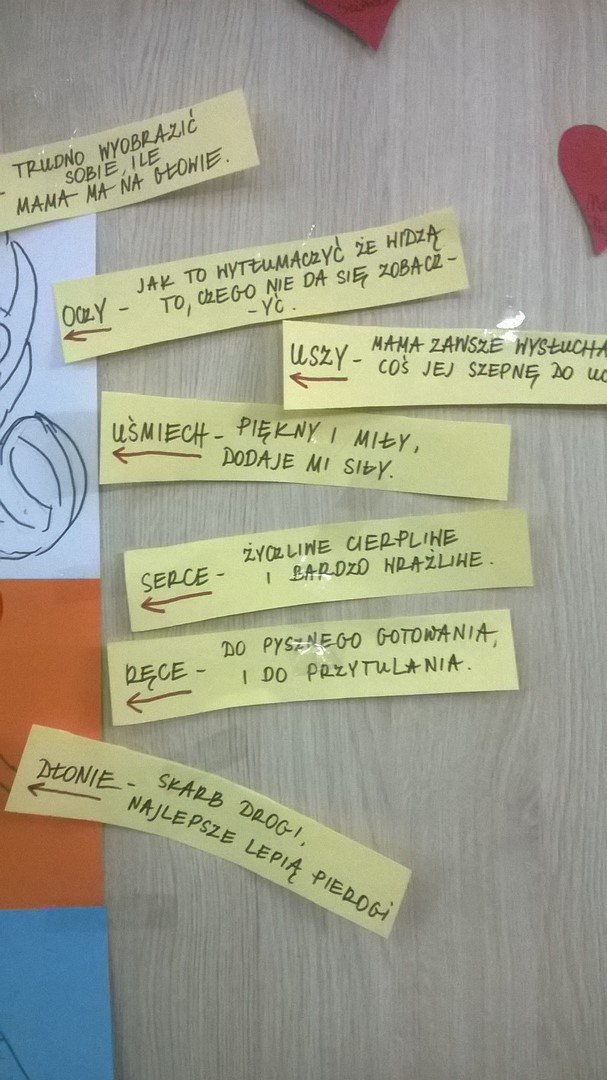 TRUDNO WYOBRAZIĆ
SOBIE, ILE
MAMA MA NA GŁOWIE.
OCZY - JAK TO WYTŁUMACZYĆ ŻE WIDZĄ
TO, CZEGO NIE DA SIĘ ZOBACZ-
-YĆ.
USZY - MAMA ZAWSZE WYSŁUCHA
COŚ JEJ SZEPNĘ DO
UŚMIECH - PIĘKNY I MIŁY,
DODAJE MI SIŁY.
SERCE - ŻYCZLIWE CIERPLIWE
I BARDZO WRAŻLIWE.
RĘCE - DO PYSZNEGO GOTOWANIA,
I DO PRZYTULANIA.
DŁONIE - SKARB DROGI,
NAJLEPSZE LEPIĄ PIEROGI